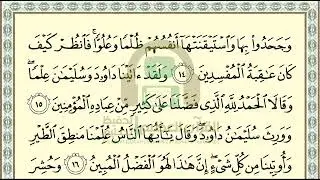 وَجَحَدُوا۟ بِهَا وَٱسْتَيْقَنَتْهَآ أَنفُسُهُمْ ظُلْمًا وَعُلُوًّا ۚ فَٱنظُرْ كَيْفَ
كَانَ عَـٰقِبَةُ ٱلْمُفْسِدِينَ ١٤ وَلَقَدْ ءَاتَيْنَا دَاوُۥدَ وَسُلَيْمَـٰنَ عِلْمًا ۖ
وَقَالَا ٱلْحَمْدُ لِلَّهِ ٱلَّذِى فَضَّلَنَا عَلَىٰ كَثِيرٍ مِّنْ عِبَادِهِ ٱلْمُؤْمِنِينَ ١٥
وَوَرِثَ سُلَيْمَـٰنُ دَاوُۥدَ ۖ وَقَالَ يَـٰٓأَيُّهَا ٱلنَّاسُ عُلِّمْنَا مَنطِقَ ٱلطَّيْرِ
وَأُوتِينَا مِن كُلِّ شَىْءٍ ۖ إِنَّ هَـٰذَا لَهُوَ ٱلْفَضْلُ ٱلْمُبِينُ ١٦ وَحُشِرَ